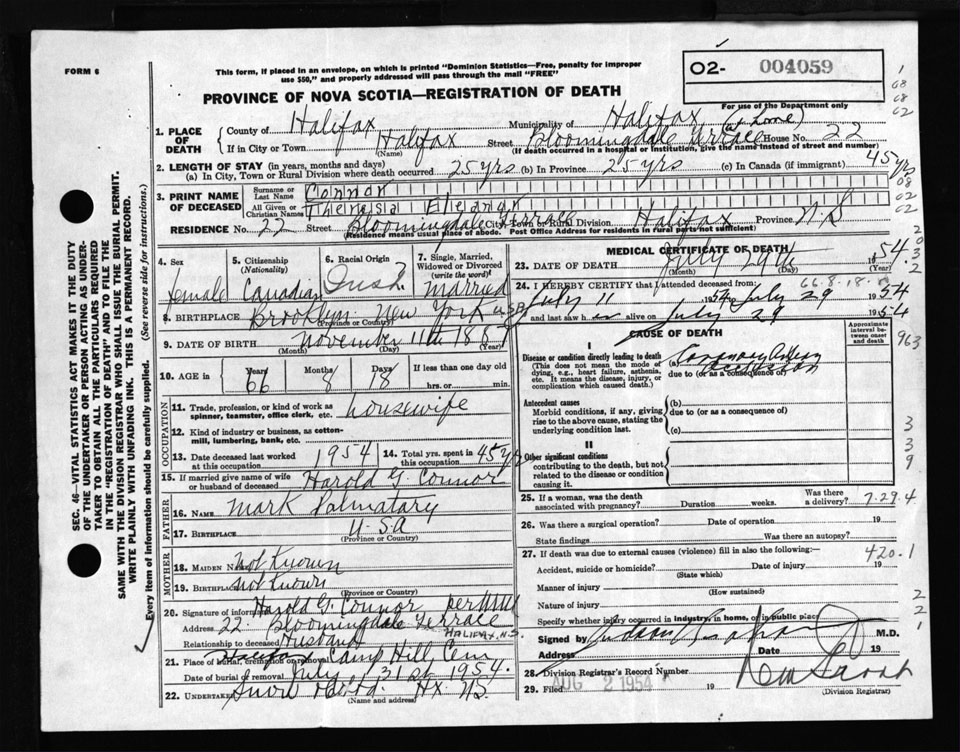 FORM 6
This form, if placed in an envelope, on which is printed "Dominion Statistics—Free, penalty for improper
use $50," and properly addressed will pass through the mail "FREE"
O2- 004059
PROVINCE OF NOVA SCOTIA—REGISTRATION OF DEATH
For use of the Department only
1. PLACE OF DEATH
County of Halifax Municipality of Halifax
If in City or Town Halifax Street Bloomingdale Terrace House No. 22 (Home)
(Name) (If death occurred in a hospital or institution, give the name instead of street and number)
2. LENGTH OF STAY (in years, months and days)
(a) In City, Town or Rural Division where death occurred 25 yrs (b) In Province 25 yrs (c) In Canada (if immigrant) 45 yrs
3. PRINT NAME OF DECEASED
Surname or Last Name Connor
All Given or Christian Names Theresa Eleanor
RESIDENCE No. 22 Street Bloomingdale Terrace City, Town or Rural Division Halifax Province N.S
(Residence means usual place of abode. Post Office Address for residents in rural parts not sufficient)
4. Sex female
5. Citizenship (Nationality) Canadian
6. Racial Origin Irish
7. Single, Married, Widowed or Divorced (write the word) Married
8. BIRTHPLACE Brooklyn New York USA
(Province or Country)
9. DATE OF BIRTH November 11th 1887
(Month) (Day) (Year)
10. AGE in Years 66 Months 8 Days 18 If less than one day old
hrs. or min.
OCCUPATION
11. Trade, profession, or kind of work as spinner, teamster, office clerk, etc. housewife
12. Kind of industry or business, as cotton-mill, lumbering, bank, etc.
13. Date deceased last worked at this occupation 1954
14. Total yrs. spent in this occupation 45 yrs
15. If married give name of wife or husband of deceased Harold G. Connor
FATHER
16. NAME Mark Palmatary
17. BIRTHPLACE U-S-A
(Province or Country)
MOTHER
18. MAIDEN NAME Not Known
19. BIRTHPLACE Not Known
(Province or Country)
20. Signature of informant Harold G. Connor per
Address 22 Bloomingdale Terrace
HALIFAX, N.S.
Relationship to deceased Husband
21. Place of burial, cremation or removal Camp Hill Cem
Date of burial or removal July 31st 1954.
22. Undertaker Snow Hx. N.S.
(Name and address)
MEDICAL CERTIFICATE OF DEATH
23. DATE OF DEATH July 29th 1954
(Month) (Day) (Year)
66.8.18.
24. I HEREBY CERTIFY that I attended deceased from:
July 11 1954 July 29 1954
and last saw h er alive on July 29 1954
CAUSE OF DEATH
Approximate interval between onset and death
I
Disease or condition directly leading to death
(This does not mean the mode of dying, e.g., heart failure, asthenia, etc. It means the disease, injury, or complication which caused death.)
(a) Coronary Artery Occlusion
due to (or as a consequence of)
Antecedent causes
Morbid conditions, if any, giving rise to the above cause, stating the underlying condition last.
(b)
due to (or as a consequence of)
(c)
II
Other significant conditions
contributing to the death, but not related to the disease or condition causing it.
25. If a woman, was the death associated with pregnancy? Duration weeks. Was there a delivery? 7.29.4
26. Was there a surgical operation? Date of operation 19
State findings Was there an autopsy?
27. If death was due to external causes (violence) fill in also the following:—
420.1
Accident, suicide or homicide? Date of injury 19
(State which)
Manner of injury
(How sustained)
Nature of injury
Specify whether injury occurred in industry, in home, or in public place
Signed by M.D.
Address Date 19
28. Division Registrar's Record Number
29. Filed AUG 2 1954 19
(Division Registrar)
SEC. 46—VITAL STATISTICS ACT MAKES IT THE DUTY
OF THE UNDERTAKER OR PERSON ACTING AS UNDER-
TAKER TO OBTAIN ALL THE PARTICULARS REQUIRED
IN THE "REGISTRATION OF DEATH" AND TO FILE THE
SAME WITH THE DIVISION REGISTRAR WHO SHALL ISSUE THE BURIAL PERMIT.
WRITE PLAINLY WITH UNFADING INK. THIS IS A PERMANENT RECORD.
Every item of information should be carefully supplied. (See reverse side for instructions.)
963